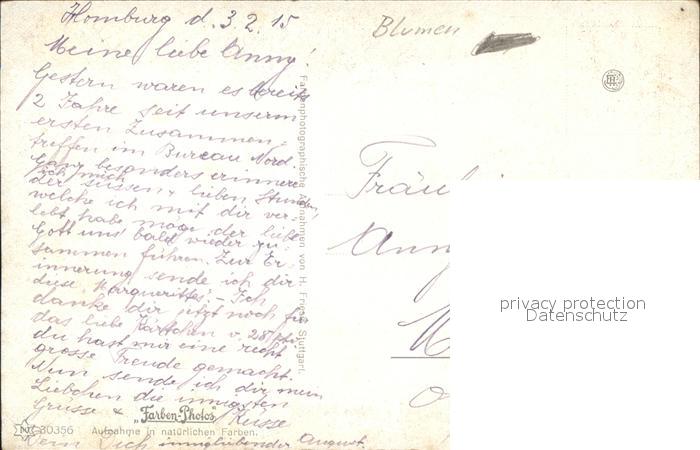 Homburg d. 3.2.15
Meine liebe Anny!
Gestern waren es bereits
2 Jahre seit unserm
ersten Zusammen-
treffen im Bureau Nord.
Ganz besonders erinnere
ich mich
der süssen & lieben Stunden,
welche ich mit dir ver-
lebt habe möge der liebe
Gott uns bald wieder zu-
sammen führen. Zur Er-
innerung sende ich dir
diese "Margueritte". – Ich
danke dir jetzt noch für
das liebe Kärtchen v. 28.
du hast mir eine recht
grosse Freude gemacht.
Nun sende ich dir mein
Liebchen die innigsten
Grüsse & Küsse
Dein Dich innigliebender August.
"Farben-Photos"
30356 Aufnahme in natürlichen Farben.
Farbenphotographische Aufnahmen von H. Fries, Stuttgart.
Blumen
Fräul
Ann
privacy protection
Datenschutz